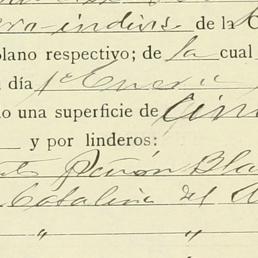 indivs. de la C
plano respectivo; de la cual
día 1º Enero
o una superficie de Cin
y por linderos:
Ramón Bla
Catalina del A
" "